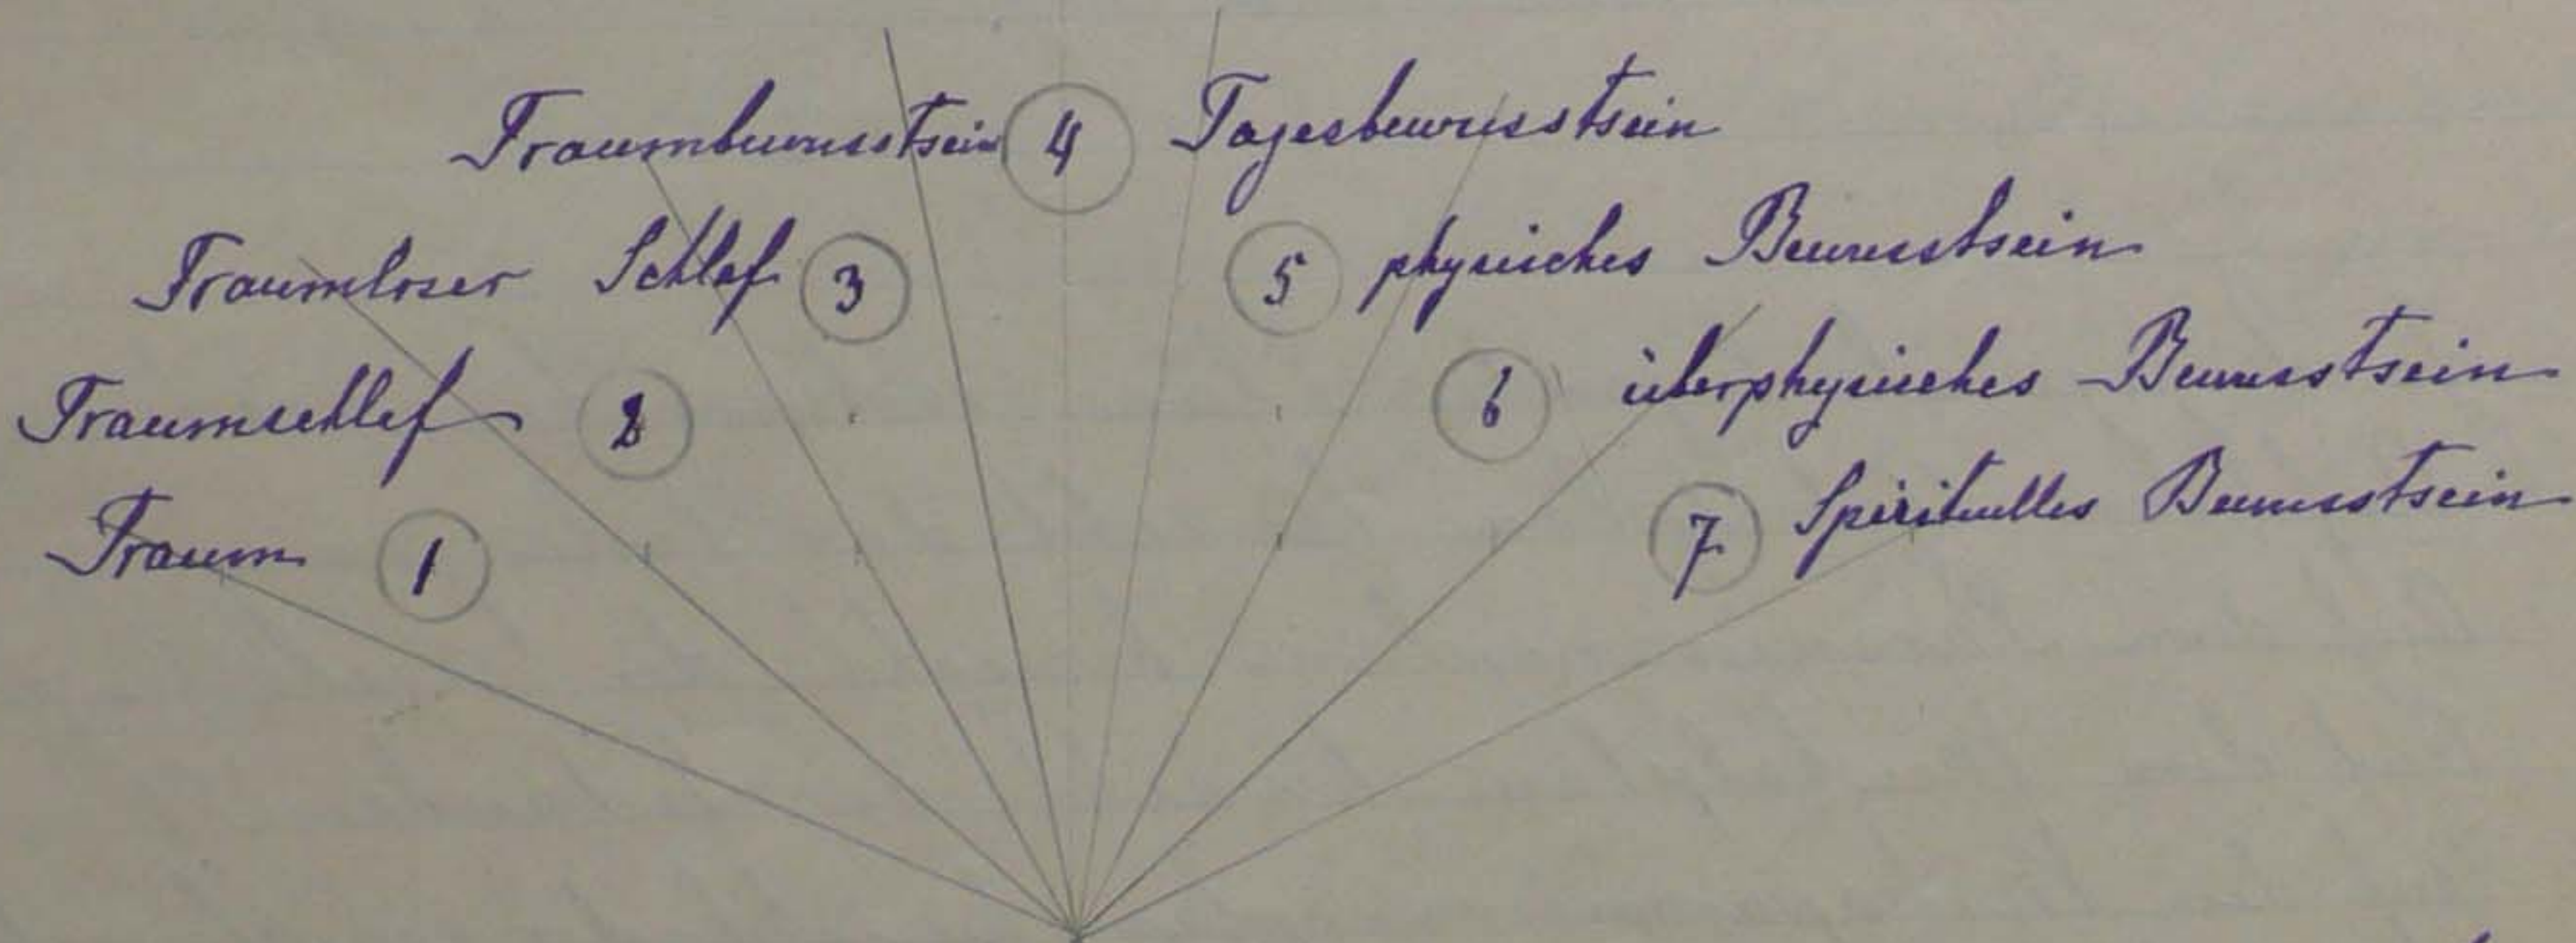 Traumbewusstsein 4 Tagesbewusstsein
Traumloser Schlaf 3 5 physisches Bewusstsein
Traumschlaf 2 6 überphysisches Bewusstsein
Traum 1 7 Spirituelles Bewusstsein